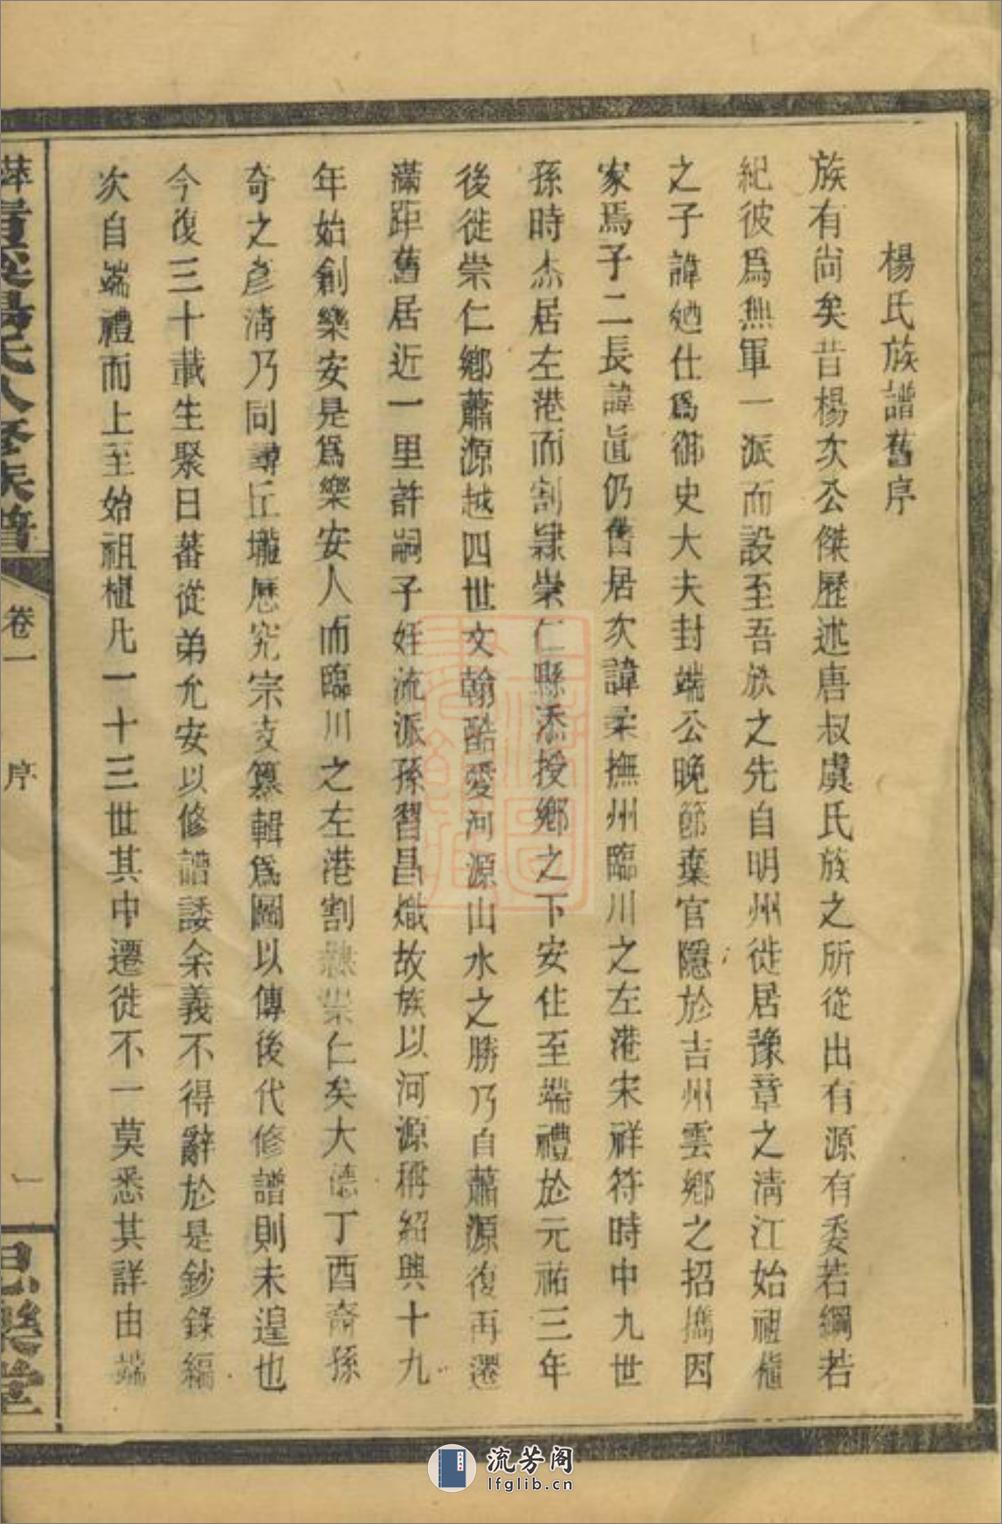 楊氏族譜舊序
族有尚矣昔楊次公傑歷述唐叔虞氏族之所從出有源有委若綱若
紀彼爲無軍一派而設至吾族之先自明州徙居豫章之淸江始祖植
之子諱迺仕爲御史大夫封端公晚節棄官隱於吉州雲鄉之招攜因
家焉子二長諱眞仍舊居次諱柔撫州臨川之左港宋祥符時中九世
孫時杰居左港而割隸崇仁縣添授鄉之下安住至端禮於元祐三年
後徙崇仁鄉蕭源越四世文翰酷愛河源山水之勝乃自蕭源復再遷
滿距舊居近一里許嗣子妊流派孫習昌熾故族以河源稱紹興十九
年始創樂安是爲樂安人而臨川之左港割隸崇仁矣大德丁酉裔孫
奇之彥淸乃同尋丘壠歷究宗支纂輯爲圖以傳後代修譜則未遑也
今復三十載生聚日蕃從弟允安以修譜諉余義不得辭於是鈔錄編
次自端禮而上至始祖植凡一十三世其中遷徙不一莫悉其詳由端
楊氏八修族譜
卷一
序
一
樂堂
流芳阁
lfglib.cn